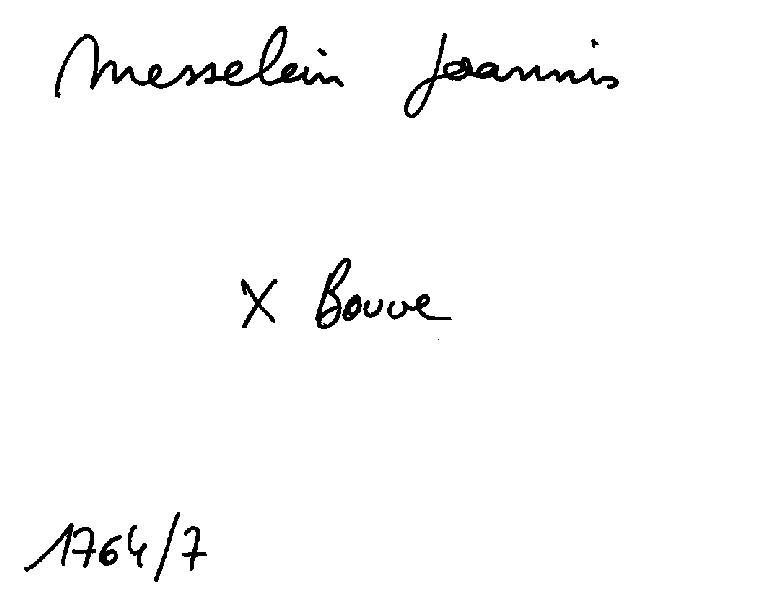 Messelein Joannis
X Bouve
1764/7